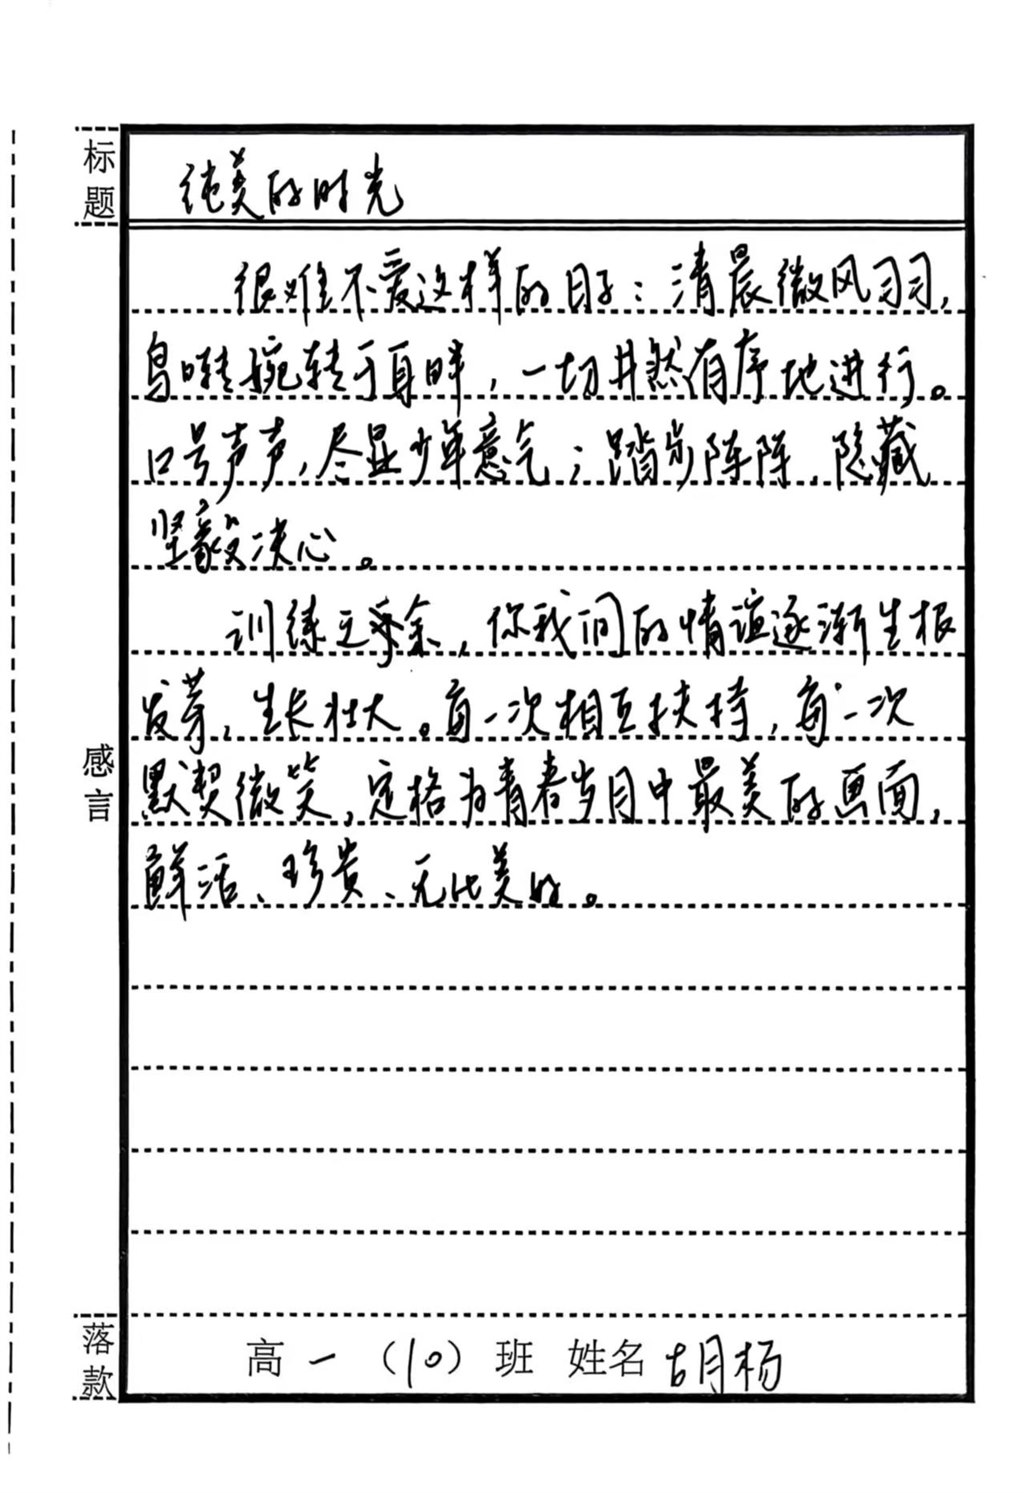 标题
纯美的时光
很难不爱这样的日子：清晨微风习习，
鸟啭婉转于耳畔，一切井然有序地进行。
口号声声，尽显少年意气；踏步阵阵，隐藏
坚毅决心。
训练之余，你我间的情谊逐渐生根
发芽，生长壮大。每一次相互扶持，每一次
默契微笑，定格为青春岁月中最美的画面，
鲜活、珍贵、无比美好。
感言
落款
高一（10）班 姓名 胡杨